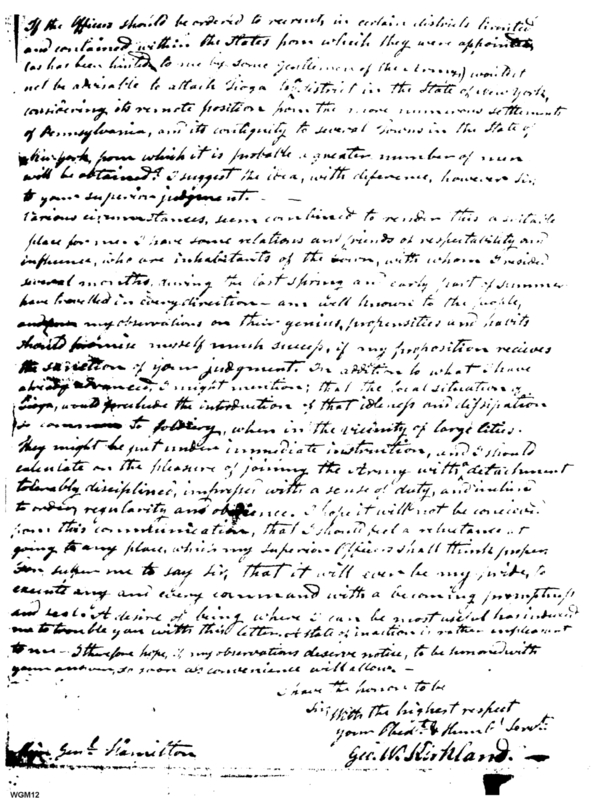 If the Officers should be ordered to recruit, in certain districts limited
and contained within the States from which they were appointed,
(as has been hinted to me by some Gentlemen of the Army) would it
not be advisable to attach Tioga to district in the State of New York,
considering its remote position from the more numerous settlements
of Pennsylvania, and its contiguity to several Towns in the State of
New York, from which it is probable a greater number of men
will be obtained? I suggest the idea, with diference, however Sir,
to your superior judgment. —
Various circumstances, seem combined to render this a suitable
place for me. I have some relations and friends of respectability and
influence, who are inhabitants of the town, with whom I resided
several months, during the last Spring and early part of summer
have travelled in every direction – am well known to the people,
my observations on their genius, propensities and habits
should promise myself much success, if my proposition recieves
the sanction of your judgment. In addition to what I have
already advanced, I might mention, that the local situation of
Tioga, would preclude the introduction of that idleness and dissipation
so common to soldiery, when in the vicinity of large Cities.
They might be put under immediate instruction, and I should
calculate on the pleasure of joining the Army with detachment
tolerably disciplined, impressed with a sense of duty, and inclined
to order, regularity and obedience. I hope it will not be conceived
from this communication, that I should feel a reluctance at
going to any place, which my superior Officers shall think proper.
suffer me to say Sir, that it will ever be my pride, to
execute any and every command with a becoming promptness
and zeal. A desire of being where I can be most useful has induced
me to trouble you with this letter. A state of inaction is rather unpleasant
to me – I therefore hope, if my observations deserve notice, to be honored with
your answer, so soon as convenience will allow. –
I have the honor to be
Sir, With the highest respect
your Obedt. & Humbl. Servt.
Geo. W. Kirkland. –
Genl. Hamilton
WGM12